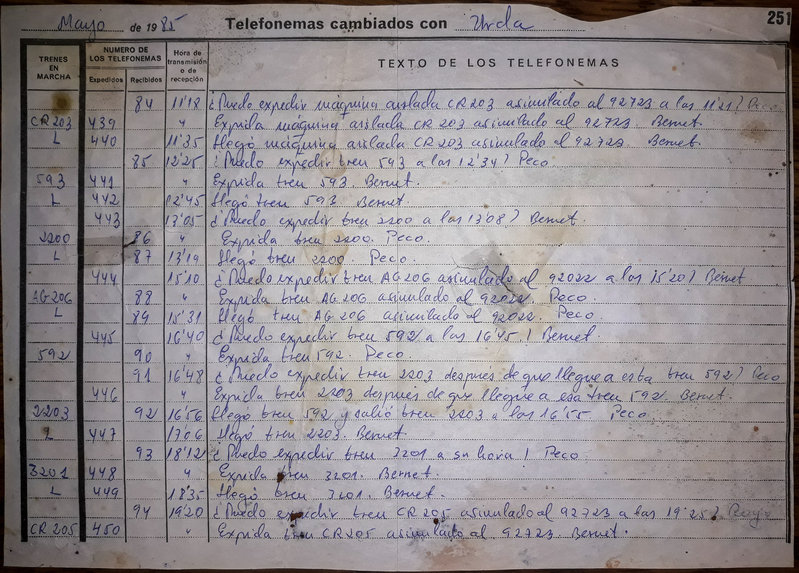 Mayo de 1985 Telefonemas cambiados con Urda 251
TRENES EN MARCHA NUMERO DE LOS TELEFONEMAS Expedidos Recibidos Hora de transmisión o de recepción TEXTO DE LOS TELEFONEMAS
84 11'18 ¿Puedo expedir máquina aislada CR 203 asimulado al 92723 a las 11'21? Peco
CR 203 439 " Expida máquina aislada CR 203 asimulado al 92723. Bernet
L 440 11'35 Llegó máquina aislada CR 203 asimulado al 92723. Bernet
85 12'25 ¿Puedo expedir tren 593 a las 12'34? Peco
593 441 " Expida tren 593. Bernet
L 442 12'45 Llegó tren 593. Bernet
443 13'05 ¿Puedo expedir tren 2200 a las 13'08? Bernet
2200 86 " Expida tren 2200. Peco.
L 87 13'19 Llegó tren 2200. Peco.
444 15'10 ¿Puedo expedir tren AG 206 asimulado al 92022 a las 15'20? Bernet
AG-206 88 " Expida tren AG 206 asimulado al 92022. Peco.
L 89 15'31 Llegó tren AG 206 asimulado al 92022. Peco
445 16'40 ¿Puedo expedir tren 592 a las 16'45? Bernet
592 90 " Expida tren 592. Peco.
91 16'48 ¿Puedo expedir tren 2203 despues de que llegue a esta tren 592? Peco
446 " Expida tren 2203 despues de que llegue a esa tren 592. Bernet.
2203 92 16'56 Llegó tren 592 y salió tren 2203 a las 16'55. Peco.
L 447 17'06 Llegó tren 2203. Bernet.
93 18'12 ¿Puedo expedir tren 3201 a su hora? Peco
3201 448 " Expida tren 3201. Bernet
L 449 18'35 Llegó tren 3201. Bernet.
94 19'20 ¿Puedo expedir tren CR 205 asimulado al 92723 a las 19'25?
CR 205 450 " Expida tren CR 205 asimulado al 92723. Bernet.